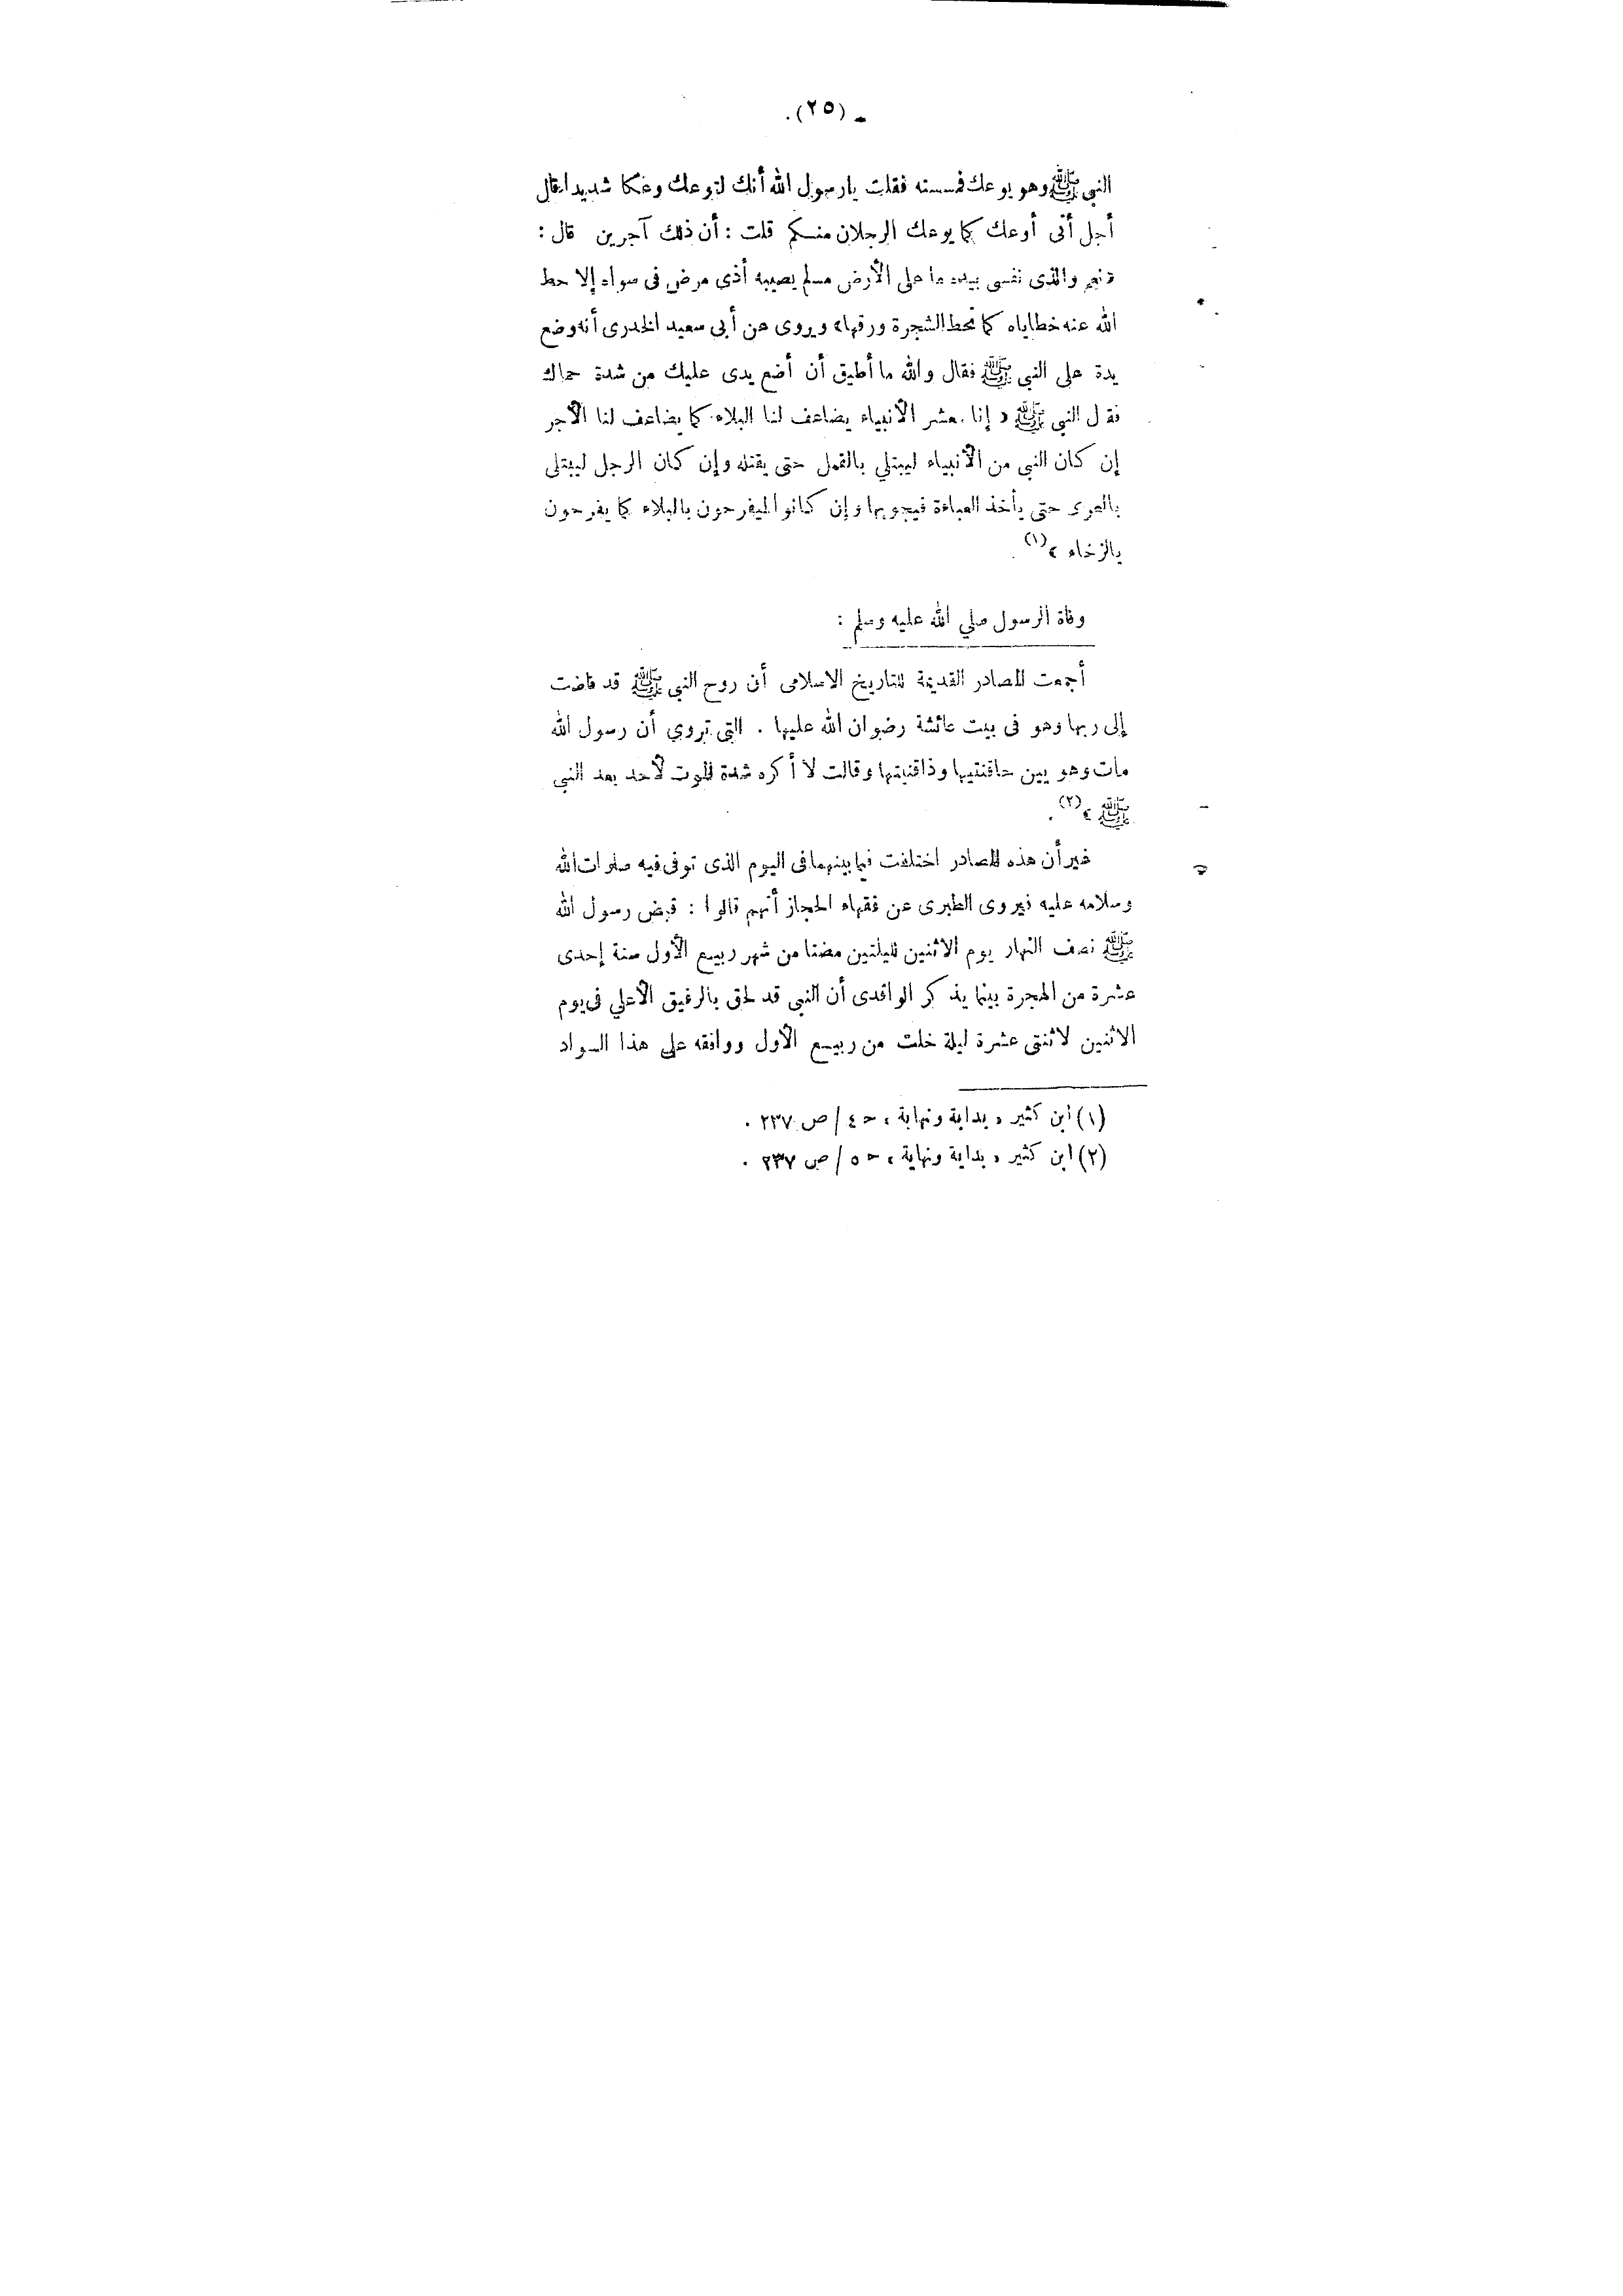 ـ (٢٥).
النبي ﷺ وهو يوعك فمسسته فقلت يارسول الله أنك لتوعك وعكا شديدا فقال
أجل أنى أوعك كما يوعك الرجلان منكم قلت : أن ذلك آجرين قال :
« نعم والذى نفسى بيده ما على الأرض مسلم يصيبه أذى مرض فى سواه إلا حط
الله عنه خطاياه كما تحط الشجرة ورقها» ويروى عن أبى سعيد الخدرى أنه وضع
يدة على النبي ﷺ فقال والله ما أطيق أن أضع يدى عليك من شدة حماك
فقال النبي ﷺ « إنا معشر الأنبياء يضاعف لنا البلاء كما يضاعف لنا الأجر
إن كان النبي من الأنبياء ليبتلي بالقمل حتى يقتله وإن كان الرجل ليبتلى
بالعرى حتى يأخذ العباءة فيجوبها وإن كانوا ليفرحون بالبلاء كما يفرحون
بالرخاء »(١) .
وفاة الرسول صلي الله عليه وسلم :
أجمعت المصادر القديمة للتاريخ الاسلامى أن روح النبي ﷺ قد فاضت
إلى ربها وهو فى بيت عائشة رضوان الله عليها . التى تروي أن رسول الله
مات وهو بين حاقنتيها وذاقنيتها وقالت لا أكره شدة الموت لأحد بعد النبي
ﷺ »(٢) .
غير أن هذه المصادر اختلفت فيما بينهما فى اليوم الذى توفى فيه صلوات الله
وسلامه عليه فيروى الطبرى عن فقهاء الحجاز أنهم قالوا : قبض رسول الله
ﷺ نصف النهار يوم الاثنين لليلتين مضتا من شهر ربيع الأول سنة إحدى
عشرة من الهجرة بينما يذكر الواقدى أن النبي قد لحق بالرفيق الأعلي فى يوم
الاثنين لاثنتى عشرة ليلة خلت من ربيع الأول ووافقه على هذا السواد
(١) ابن كثير « بداية ونهاية » ح ٤ / ص ٢٣٧ .
(٢) ابن كثير « بداية ونهاية » ح ٥ / ص ٢٣٧ .